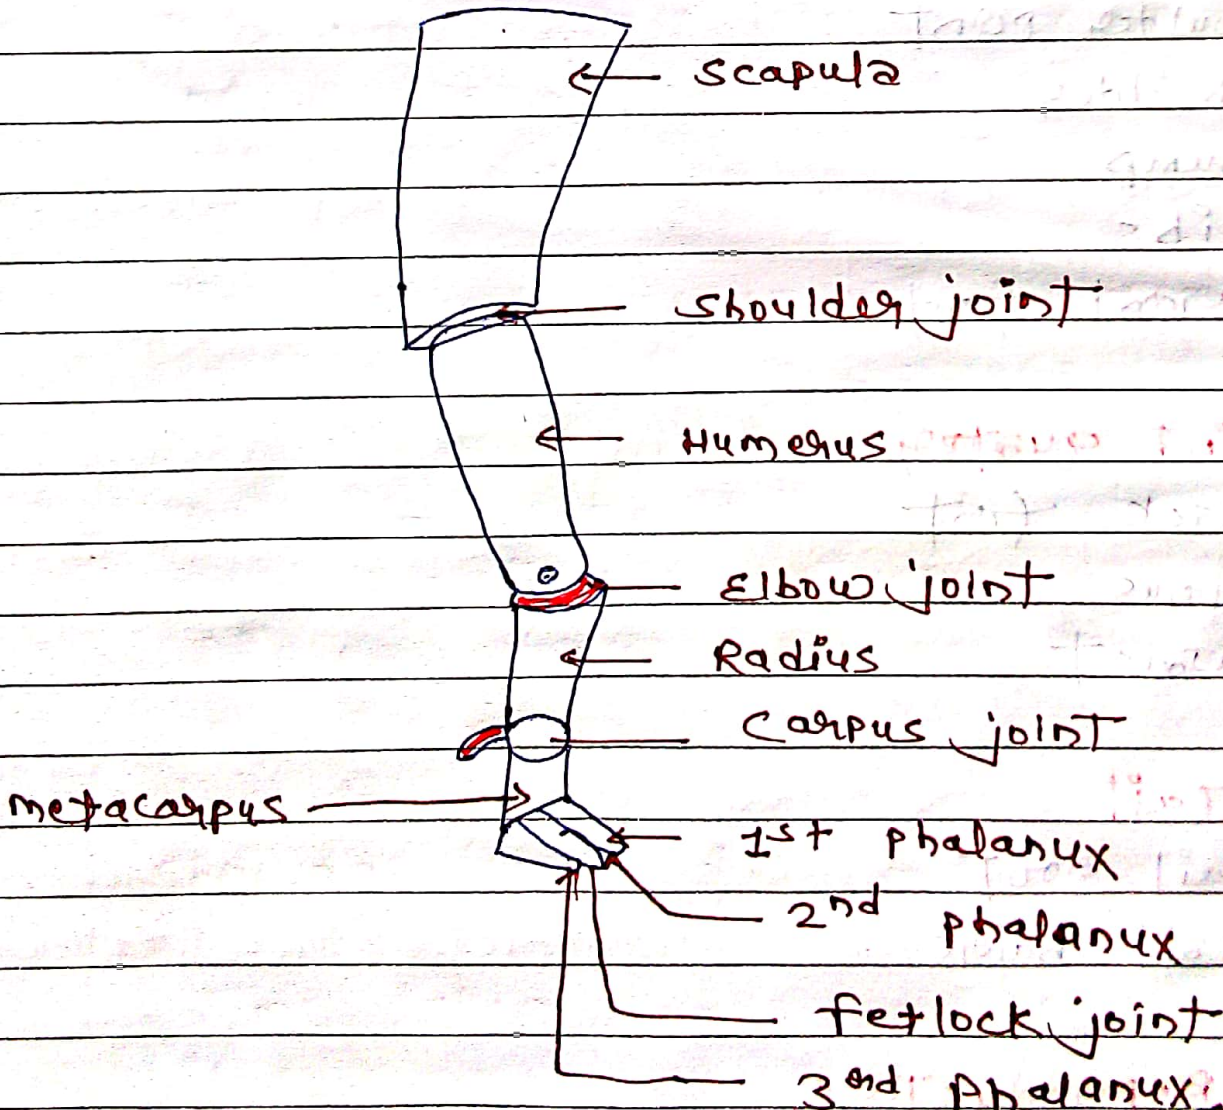 Scapula
Shoulder joint
Humerus
Elbow joint
Radius
Carpus joint
metacarpus
1st phalanux
2nd phalanux
fetlock joint
3rd phalanux